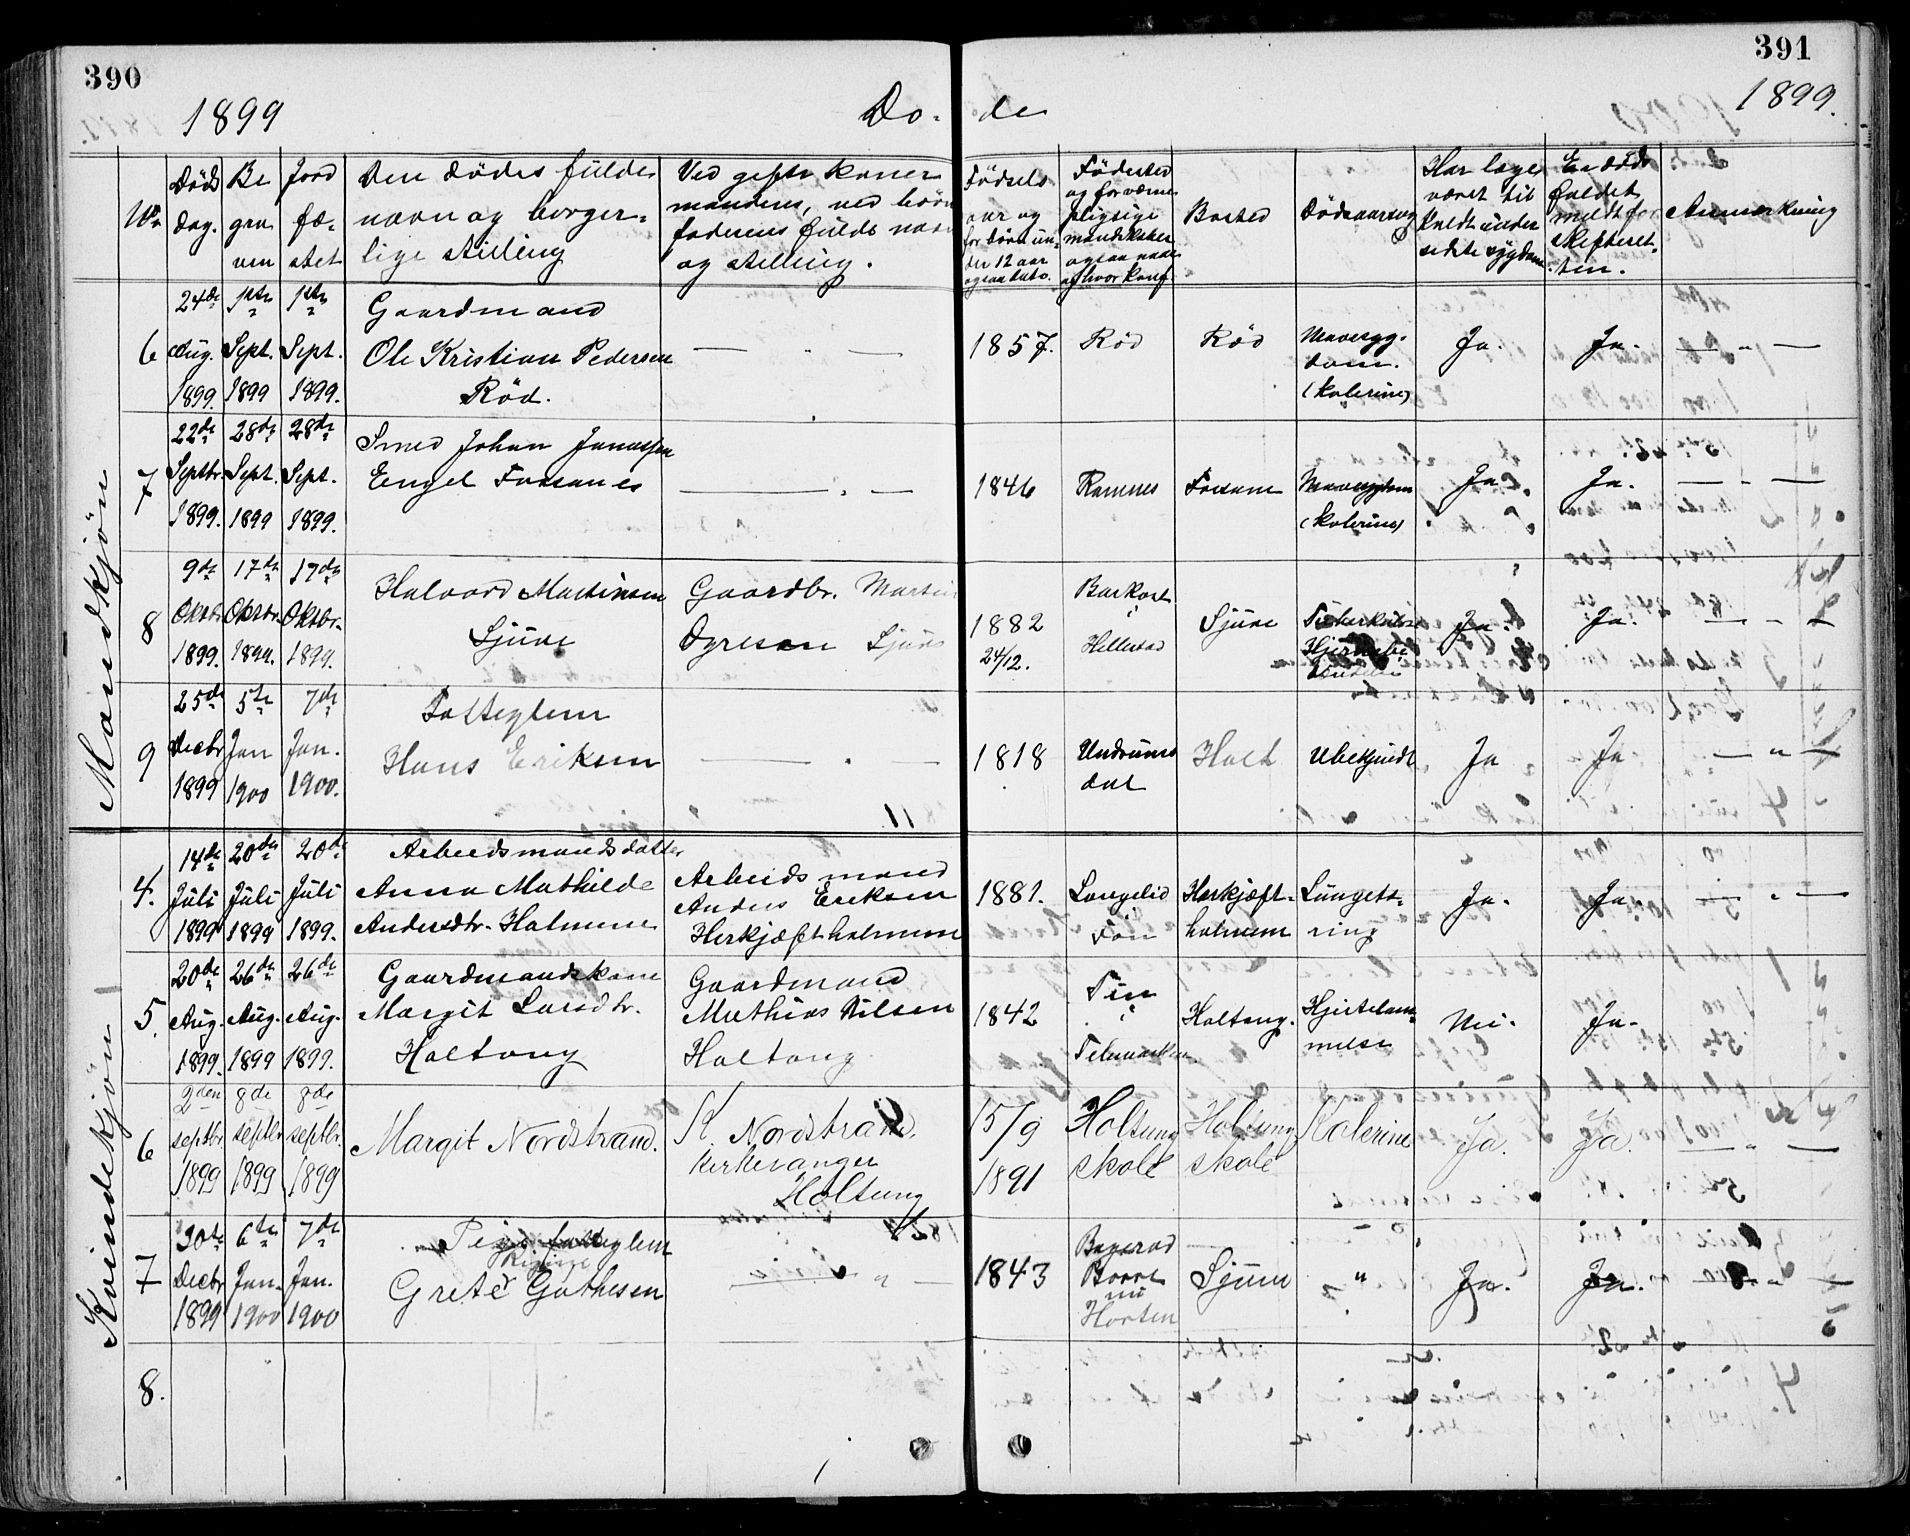 390
391
1899
Dö-
de
1899.
No
Döds
dag.
Be
gra
ven
Jord
fæ-
stet
Den dödes fulde
navn og borger-
lige stilling
Ved gifte koner
mandens, ved börn
faderens fulde navn
og stilling.
Födsels
aar og
for börn un-
der 12 aar
ogsaa dato.
Födested
og for værne-
pligtige
mandskaber
ogsaa
Bosted
Dödsaarsag
Har læge
været til
kaldt under
sidste sygdom
Er döds
faldet
meldt for
skifteret-
ten.
Anmærkning
Mandkjön
6
24de
Aug.
1899.
1ste
Sept.
1899
1ste
Sept.
1899.
Gaardmand
Ole Kristian Pedersen
Röd.
— " —
1857.
Röd
Röd
Mavesyg-
dom.
(kolerine)
Ja.
Ja.
— " —
7
22de
Septbr.
1899.
28de
Sept.
1899
28de
Sept.
1899.
Smed Johan
Engel Fossanes
— " —
1846
Ramnes
Fossane
Mavesygdom
(kolerine)
Ja.
Ja.
— " —
8
9de
Oktbr.
1899.
17de
Oktbr.
1899.
17de
Oktbr.
1899.
Halvard Martinsen
Sjüve
Gaardbr. Martin
Sjüve
1882
24/12.
i
Hillestad
Sjüve
Ja.
Ja.
— " —
9
25de
Decbr
1899
5te
Jan
1900
7de
Jan.
1900.
Fattiglem
Hans Eriksen
— " —
1818
Undrums
dal
Holt
Ubekjendt
Ja
Ja
— " —
Kvindekjön
4.
14de
Juli
1899
20de
Juli
1899
20de
Juli
1899.
Arbeidsmandsdatter
Anna Mathilde
Andersdtr. Holmene
Arbeidsmand
Anders Eriksen
Herkjæftholmene
1881.
Langelid
Fön
Herkjæft-
holmem
Lungetæ-
ring
Ja.
Ja.
— " —
5.
20de
Aug.
1899.
26de
Aug.
1899
26de
Aug.
1899.
Gaardmandskone
Margit Larsdtr.
Holtung
Gaardmand
Mathias Nilsen
Holtung
1842
Tin
i
Telemarken
Holtung.
Hjertelam-
melse
Nei.
Ja.
6
2den
septbr.
1899
8de
septbr
1899
8de
septbr.
1899
Margit Nordstrand.
K. Nordstrand,
Kirkesanger
Holtung
15/9
1891
Holtung
skole
Holtung
skole
Kolerine
Ja.
Ja.
— " —
7
30te
Decbr
1899
6te
Jan.
1900
7de
Jan.
1900
Pige
Grete Gathesen
— " —
1843
Borre
nu
Horten
Sjüve
"
Ja.
Ja.
— " —
8.